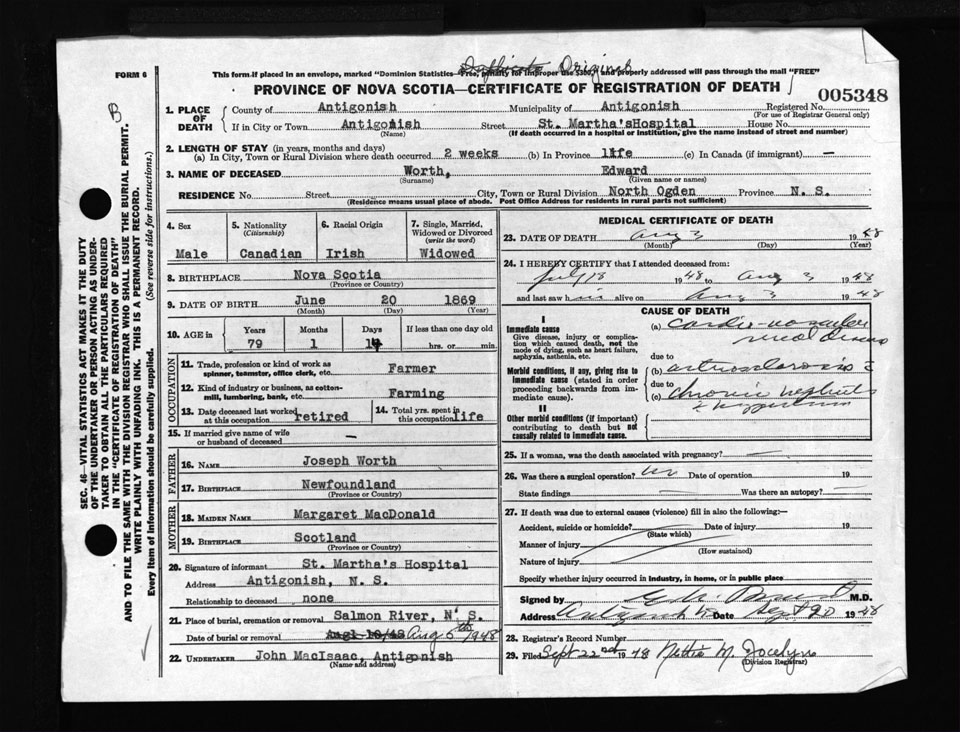 Original
FORM 6 This form if placed in an envelope, marked "Dominion Statistics—Free, penalty for improper use $300," and properly addressed will pass through the mail "FREE"
PROVINCE OF NOVA SCOTIA—CERTIFICATE OF REGISTRATION OF DEATH
005348
B
SEC. 46—VITAL STATISTICS ACT MAKES IT THE DUTY
OF THE UNDERTAKER OR PERSON ACTING AS UNDER-
TAKER TO OBTAIN ALL THE PARTICULARS REQUIRED
IN THE "CERTIFICATE OF REGISTRATION OF DEATH"
AND TO FILE THE SAME WITH THE DIVISION REGISTRAR WHO SHALL ISSUE THE BURIAL PERMIT.
WRITE PLAINLY WITH UNFADING INK. THIS IS A PERMANENT RECORD.
Every item of Information should be carefully supplied. (See reverse side for instructions.)
1. PLACE OF DEATH
County of Antigonish Municipality of Antigonish Registered No.
(For use of Registrar General only)
If in City or Town Antigonish Street St. Martha'sHospital House No.
(Name) (If death occurred in a hospital or institution, give the name instead of street and number)
2. LENGTH OF STAY (in years, months and days)
(a) In City, Town or Rural Division where death occurred 2 weeks (b) In Province life (c) In Canada (if immigrant) —
3. NAME OF DECEASED Worth, Edward
(Surname) (Given name or names)
RESIDENCE No. Street City, Town or Rural Division North Ogden Province N. S.
(Residence means usual place of abode. Post Office Address for residents in rural parts not sufficient)
4. Sex 5. Nationality 6. Racial Origin 7. Single, Married,
(Citizenship) Widowed or Divorced
(write the word)
Male Canadian Irish Widowed
8. BIRTHPLACE Nova Scotia
(Province or Country)
9. DATE OF BIRTH June 20 1869
(Month) (Day) (Year)
10. AGE in Years Months Days If less than one day old
79 1 14 hrs. or min.
OCCUPATION
11. Trade, profession or kind of work as
spinner, teamster, office clerk, etc. Farmer
12. Kind of industry or business, as cotton-
mill, lumbering, bank, etc. Farming
13. Date deceased last worked at this occupation retired 14. Total yrs. spent in this occupation life
15. If married give name of wife
or husband of deceased —
FATHER
16. NAME Joseph Worth
17. BIRTHPLACE Newfoundland
(Province or Country)
MOTHER
18. MAIDEN NAME Margaret MacDonald
19. BIRTHPLACE Scotland
(Province or Country)
20. Signature of informant St. Martha's Hospital
Address Antigonish, N. S.
Relationship to deceased none
21. Place of burial, cremation or removal Salmon River, N. S.
Date of burial or removal Aug 5th 1948
22. UNDERTAKER John MacIsaac, Antigonish
(Name and address)
MEDICAL CERTIFICATE OF DEATH
23. DATE OF DEATH Aug 3 1948
(Month) (Day) (Year)
24. I HEREBY CERTIFY that I attended deceased from:
July 18 1948 to Aug 3 1948
and last saw him alive on Aug 3 1948
CAUSE OF DEATH
I
Immediate cause
Give disease, injury or complica-
tion which caused death, not the
mode of dying, such as heart failure,
asphyxia, asthenia, etc.
Morbid conditions, if any, giving rise to
immediate cause (stated in order
proceeding backwards from im-
mediate cause).
II
Other morbid conditions (if important)
contributing to death but not
causally related to immediate cause.
(a) cardio-vascular
renal disease
due to
(b) arteriosclerosis
due to
(c) chronic nephritis
25. If a woman, was the death associated with pregnancy? —
26. Was there a surgical operation? no Date of operation 19
State findings — Was there an autopsy? —
27. If death was due to external causes (violence) fill in also the following:—
Accident, suicide or homicide? Date of injury 19
(State which)
Manner of injury
(How sustained)
Nature of injury
Specify whether injury occurred in industry, in home, or in public place
Signed by M.D.
Address Antigonish Date Sept 20 1948
28. Registrar's Record Number
29. Filed Sept 22nd 1948 Nettie M. Jocelyn
(Division Registrar)